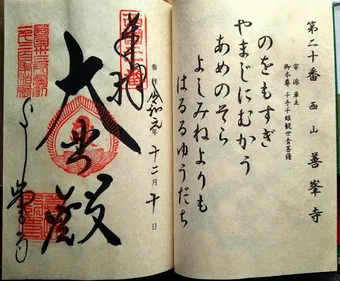 第二十番 西山 善峯寺
宗派 単立
御本尊 千手千眼観世音菩薩
のをもすぎ
やまじにむかう
あめのそら
よしみねよりも
はるるゆうだち
奉拝
大悲殿
令和元年 十二月 十日